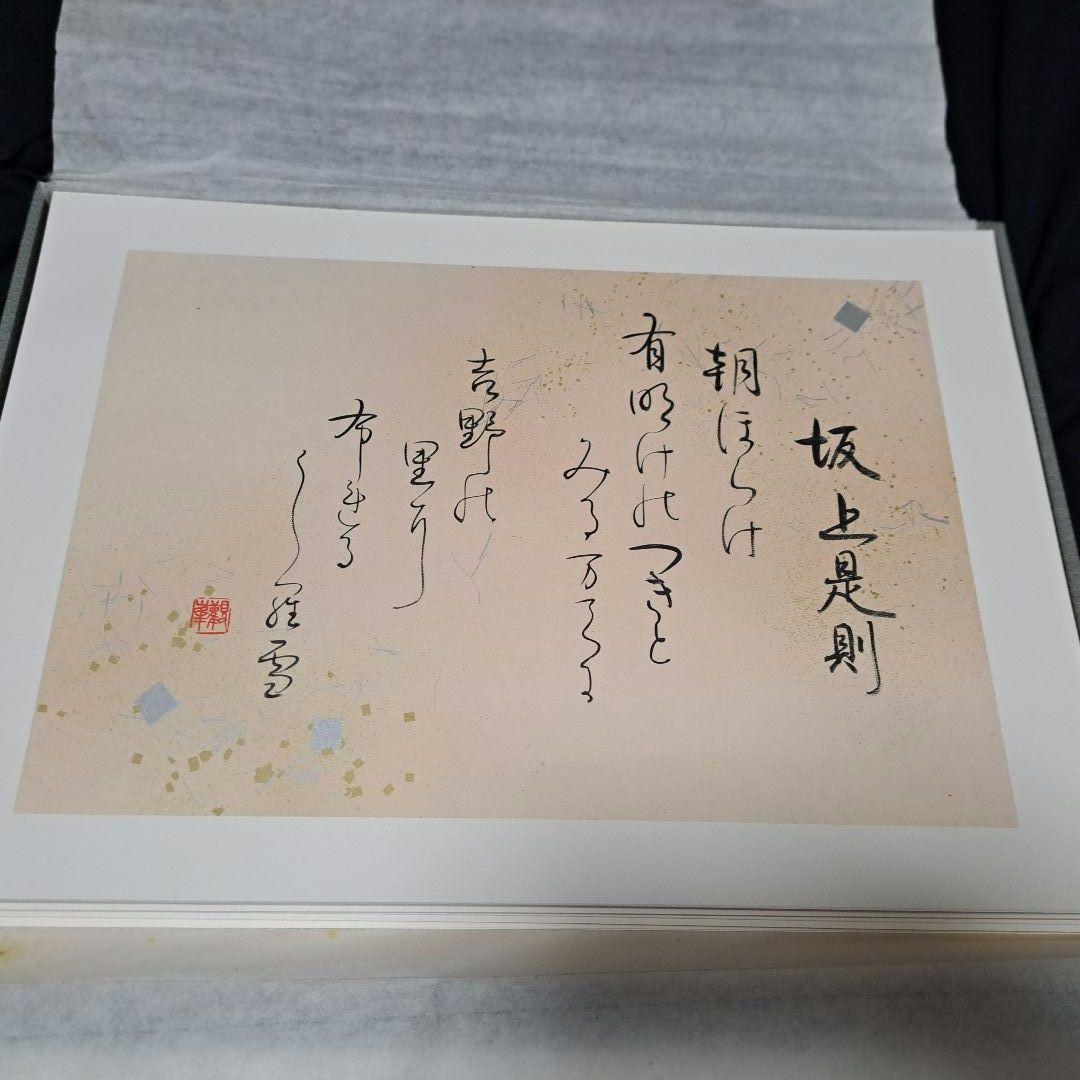 坂上是則
朝ほらけ
有明けのつきと
みる万てに
吉野の
里尓
布れる
し羅雪